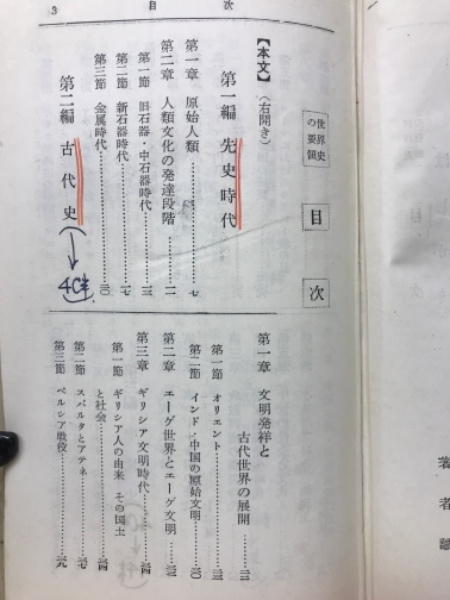 次
目
3
世界史
の要領
目
次
【本文】(右開き)
第一編 先史時代
第一章 原始人類……七
第二章 人類文化の発達段階……一一
第一節 旧石器・中石器時代……一三
第二節 新石器時代……一七
第三節 金属時代……二〇
第二編 古代史
→4C末
第一章 文明発祥と
古代世界の展開……二二
第一節 オリエント……二二
第二節 インド・中国の原始文明……三〇
第二章 エーゲ世界とエーゲ文明
第三章 ギリシア文明時代
第一節 ギリシア人の由来 その国土
と社会
第二節 スパルタとアテネ
第三節 ペルシア戦役
著者識